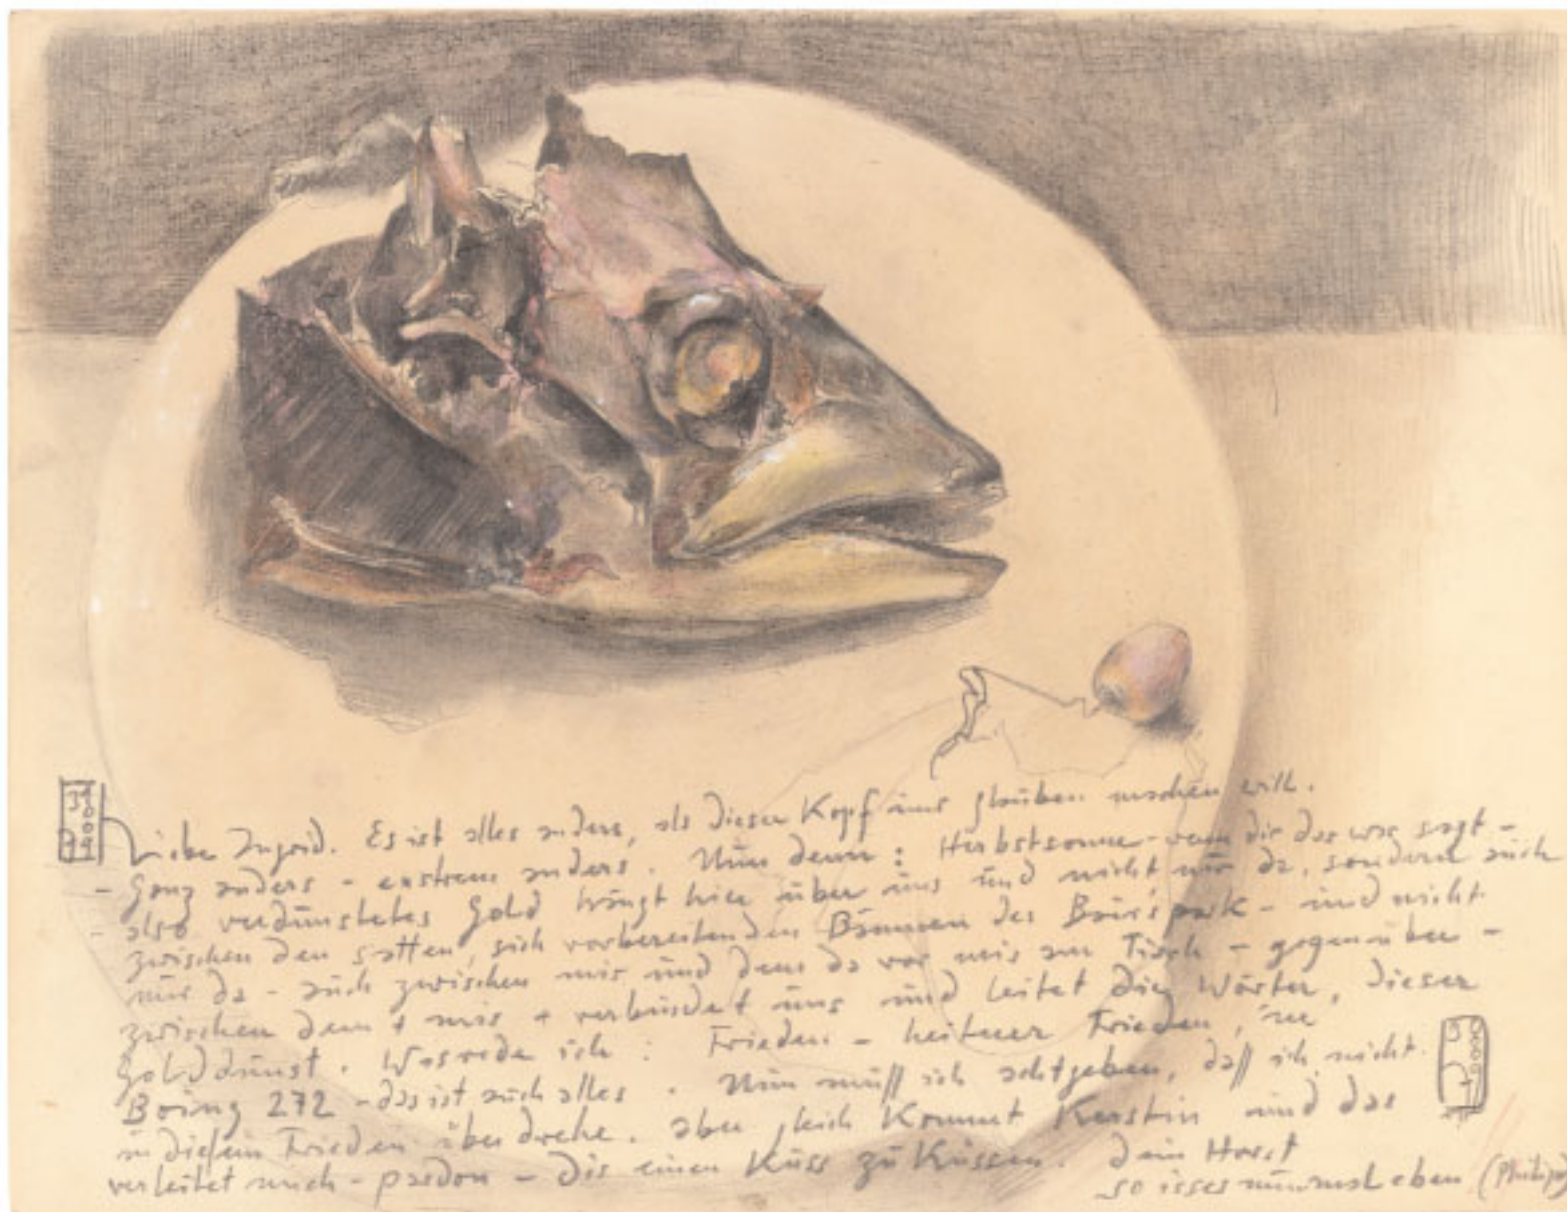 Liebe Ingrid. Es ist alles anders, als dieser Kopf uns glauben machen will.
- ganz anders - extrem anders. Nun denn: Herbstsonne - wenn dir das was sagt -
- also verdünstetes Gold hängt hier über uns und nicht nur da, sondern auch
zwischen den satten, sich vorbereitenden Bäumen des - und nicht
nur da - auch zwischen mir und dem da vor mir am Tisch - gegenüber -
zwischen dem + mir + verbündet uns und leitet die Wörter, dieser
Golddunst. Was rede ich: Frieden - heiterer Frieden, 'ne
Boing 272 - das ist auch alles. Nun muß ich achtgeben, daß ich nicht
in diesem Frieden überdrehe. aber gleich kommt Kerstin und das
verleitet mich - pardon - dir einen Kuss zu küssen. Dein Horst
so isses nunmal eben